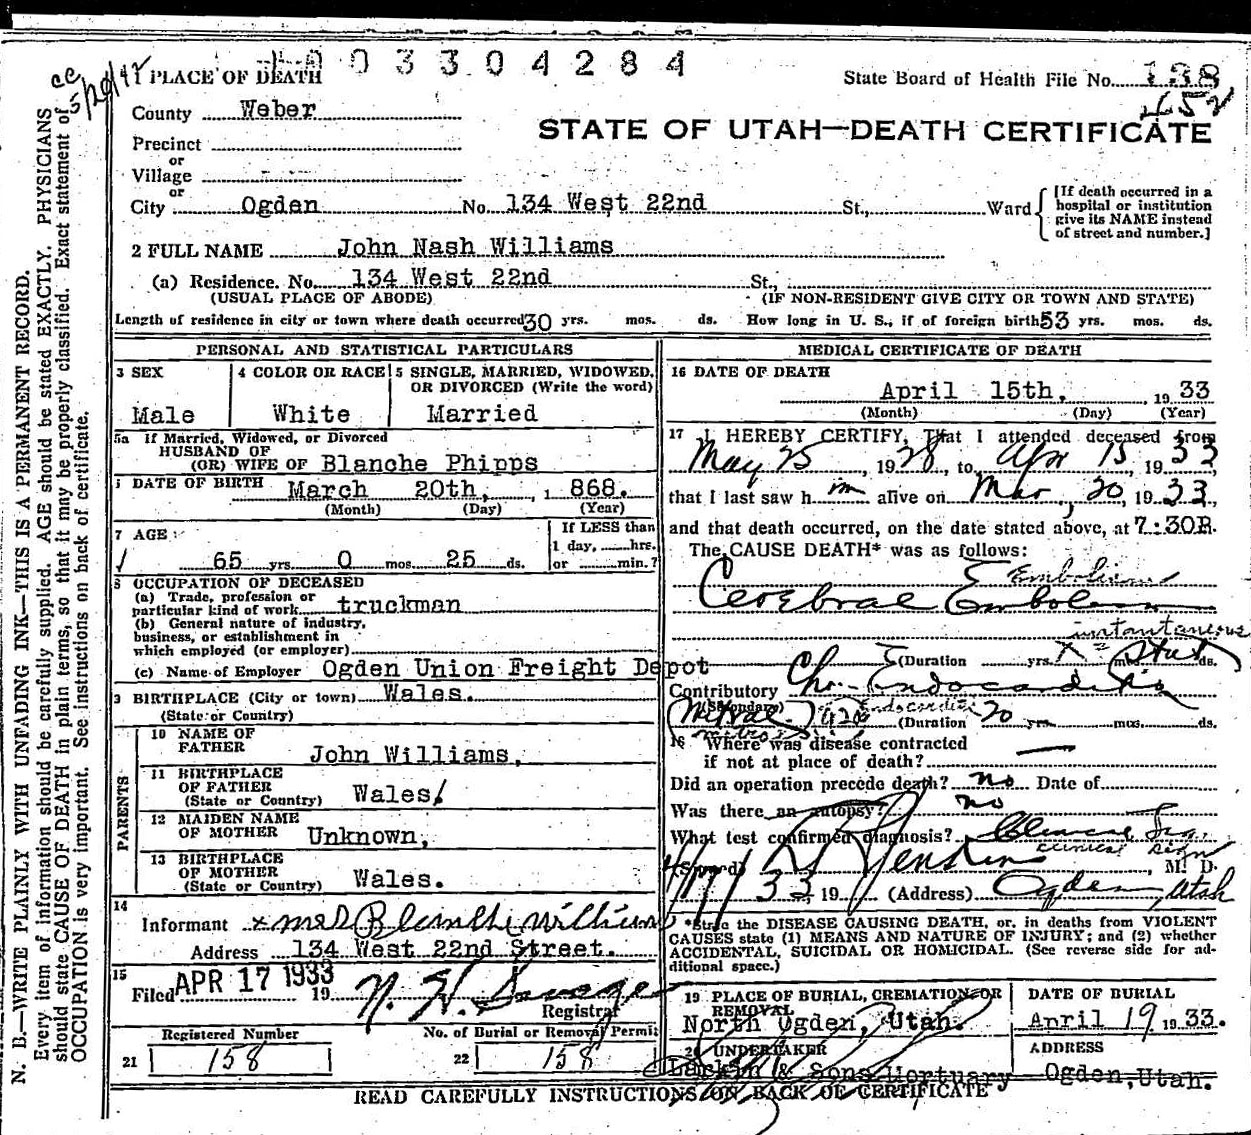 003304284
cc 5/20/42
1 PLACE OF DEATH
State Board of Health File No. 138
452
County Weber
STATE OF UTAH—DEATH CERTIFICATE
Precinct
or
Village
or
City Ogden No. 134 West 22nd St., Ward
[If death occurred in a
hospital or institution
give its NAME instead
of street and number.]
2 FULL NAME John Nash Williams
(a) Residence. No. 134 West 22nd St.,
(USUAL PLACE OF ABODE) (IF NON-RESIDENT GIVE CITY OR TOWN AND STATE)
Length of residence in city or town where death occurred 30 yrs. mos. ds. How long in U. S., if of foreign birth 53 yrs. mos. ds.
PERSONAL AND STATISTICAL PARTICULARS
3 SEX
Male
4 COLOR OR RACE
White
5 SINGLE, MARRIED, WIDOWED,
OR DIVORCED (Write the word)
Married
5a If Married, Widowed, or Divorced
HUSBAND OF
(OR) WIFE OF Blanche Phipps
DATE OF BIRTH March 20th, 1868.
(Month) (Day) (Year)
7 AGE
65 yrs. 0 mos. 25 ds.
If LESS than
1 day, hrs.
or min.?
8 OCCUPATION OF DECEASED
(a) Trade, profession or
particular kind of work truckman
(b) General nature of industry,
business, or establishment in
which employed (or employer)
(c) Name of Employer Ogden Union Freight Depot
9 BIRTHPLACE (City or town) Wales.
(State or Country)
PARENTS
10 NAME OF
FATHER John Williams,
11 BIRTHPLACE
OF FATHER
(State or Country) Wales.
12 MAIDEN NAME
OF MOTHER Unknown,
13 BIRTHPLACE
OF MOTHER
(State or Country) Wales.
14
Informant x Mrs Blanche Williams
Address 134 West 22nd Street.
15
Filed APR 17 1933 19 N. H. Savage
Registrar
Registered Number
21 158
No. of Burial or Removal Permit
22 158
MEDICAL CERTIFICATE OF DEATH
16 DATE OF DEATH
April 15th, 1933
(Month) (Day) (Year)
17 I HEREBY CERTIFY, That I attended deceased from
May 25, 1928, to Apr 15, 1933
that I last saw him alive on Mar, 20 1933,
and that death occurred, on the date stated above, at 7:30P.
The CAUSE DEATH* was as follows:
Embolism
Cerebral Embolism
instantaneous
(Duration yrs. mos. ds.
Contributory Ch. Endocarditis
(Secondary)
(Mitral) Endocarditis (Duration 20 yrs. mos. ds.
18 Where was disease contracted
if not at place of death?
Did an operation precede death? no Date of
Was there an autopsy? no
What test confirmed diagnosis? Clinical Sig.
clinical sign
(Signed) Jenkins, M. D.
4/17/33, 19 (Address) Ogden, Utah
*State the DISEASE CAUSING DEATH, or, in deaths from VIOLENT
CAUSES state (1) MEANS AND NATURE OF INJURY; and (2) whether
ACCIDENTAL, SUICIDAL OR HOMICIDAL. (See reverse side for ad-
ditional space.)
19 PLACE OF BURIAL, CREMATION OR
REMOVAL
North Ogden, Utah.
DATE OF BURIAL
April 19 1933.
20 UNDERTAKER
Larkin & Sons Mortuary
ADDRESS
Ogden, Utah.
READ CAREFULLY INSTRUCTIONS ON BACK OF CERTIFICATE
N. B.—WRITE PLAINLY WITH UNFADING INK—THIS IS A PERMANENT RECORD.
Every item of information should be carefully supplied. AGE should be stated EXACTLY. PHYSICIANS
should state CAUSE OF DEATH in plain terms, so that it may be properly classified. Exact statement of
OCCUPATION is very important. See instructions on back of certificate.